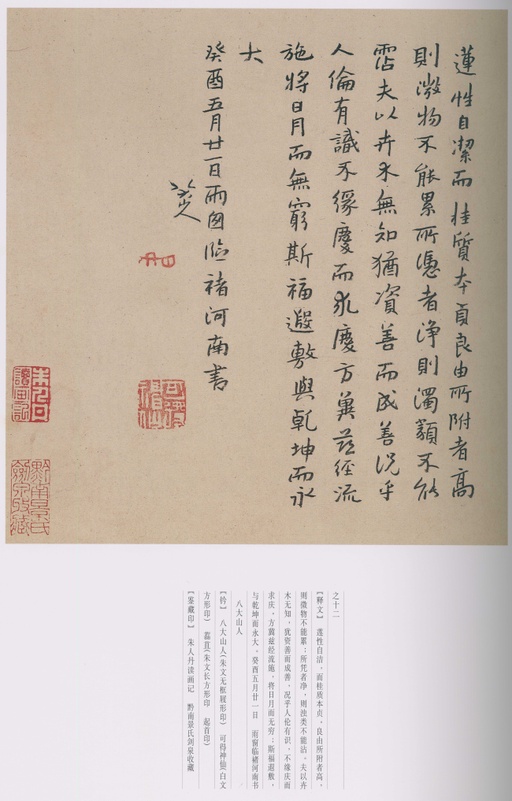 蓮性自潔而桂質本貞良由所附者高
則微物不能累所憑者淨則濁類不能
霑夫以卉木無知猶資善而成善況乎
人倫有識不緣慶而求慶方冀茲經流
施將日月而無窮斯福遐敷與乾坤而永
大
癸酉五月廿一日雨囪臨褚河南書
八大山人
可得神仙
之十二
【释文】 莲性自洁，而桂质本贞，良由所附者高，
则微物不能累；所凭者净，则浊类不能沾。夫以卉
木无知，犹资善而成善，况乎人伦有识，不缘庆而
求庆。方冀兹经流施，将日月而无穷；斯福遐敷，
与乾坤而永大。癸酉五月廿一日 雨窗临褚河南书
八大山人
【钤】 八大山人(朱文无框屐形印) 可得神仙(白文
方形印) (朱文长方形印 起首印)
【鉴藏印】 朱人丹读画记 黔南景氏剑泉收藏